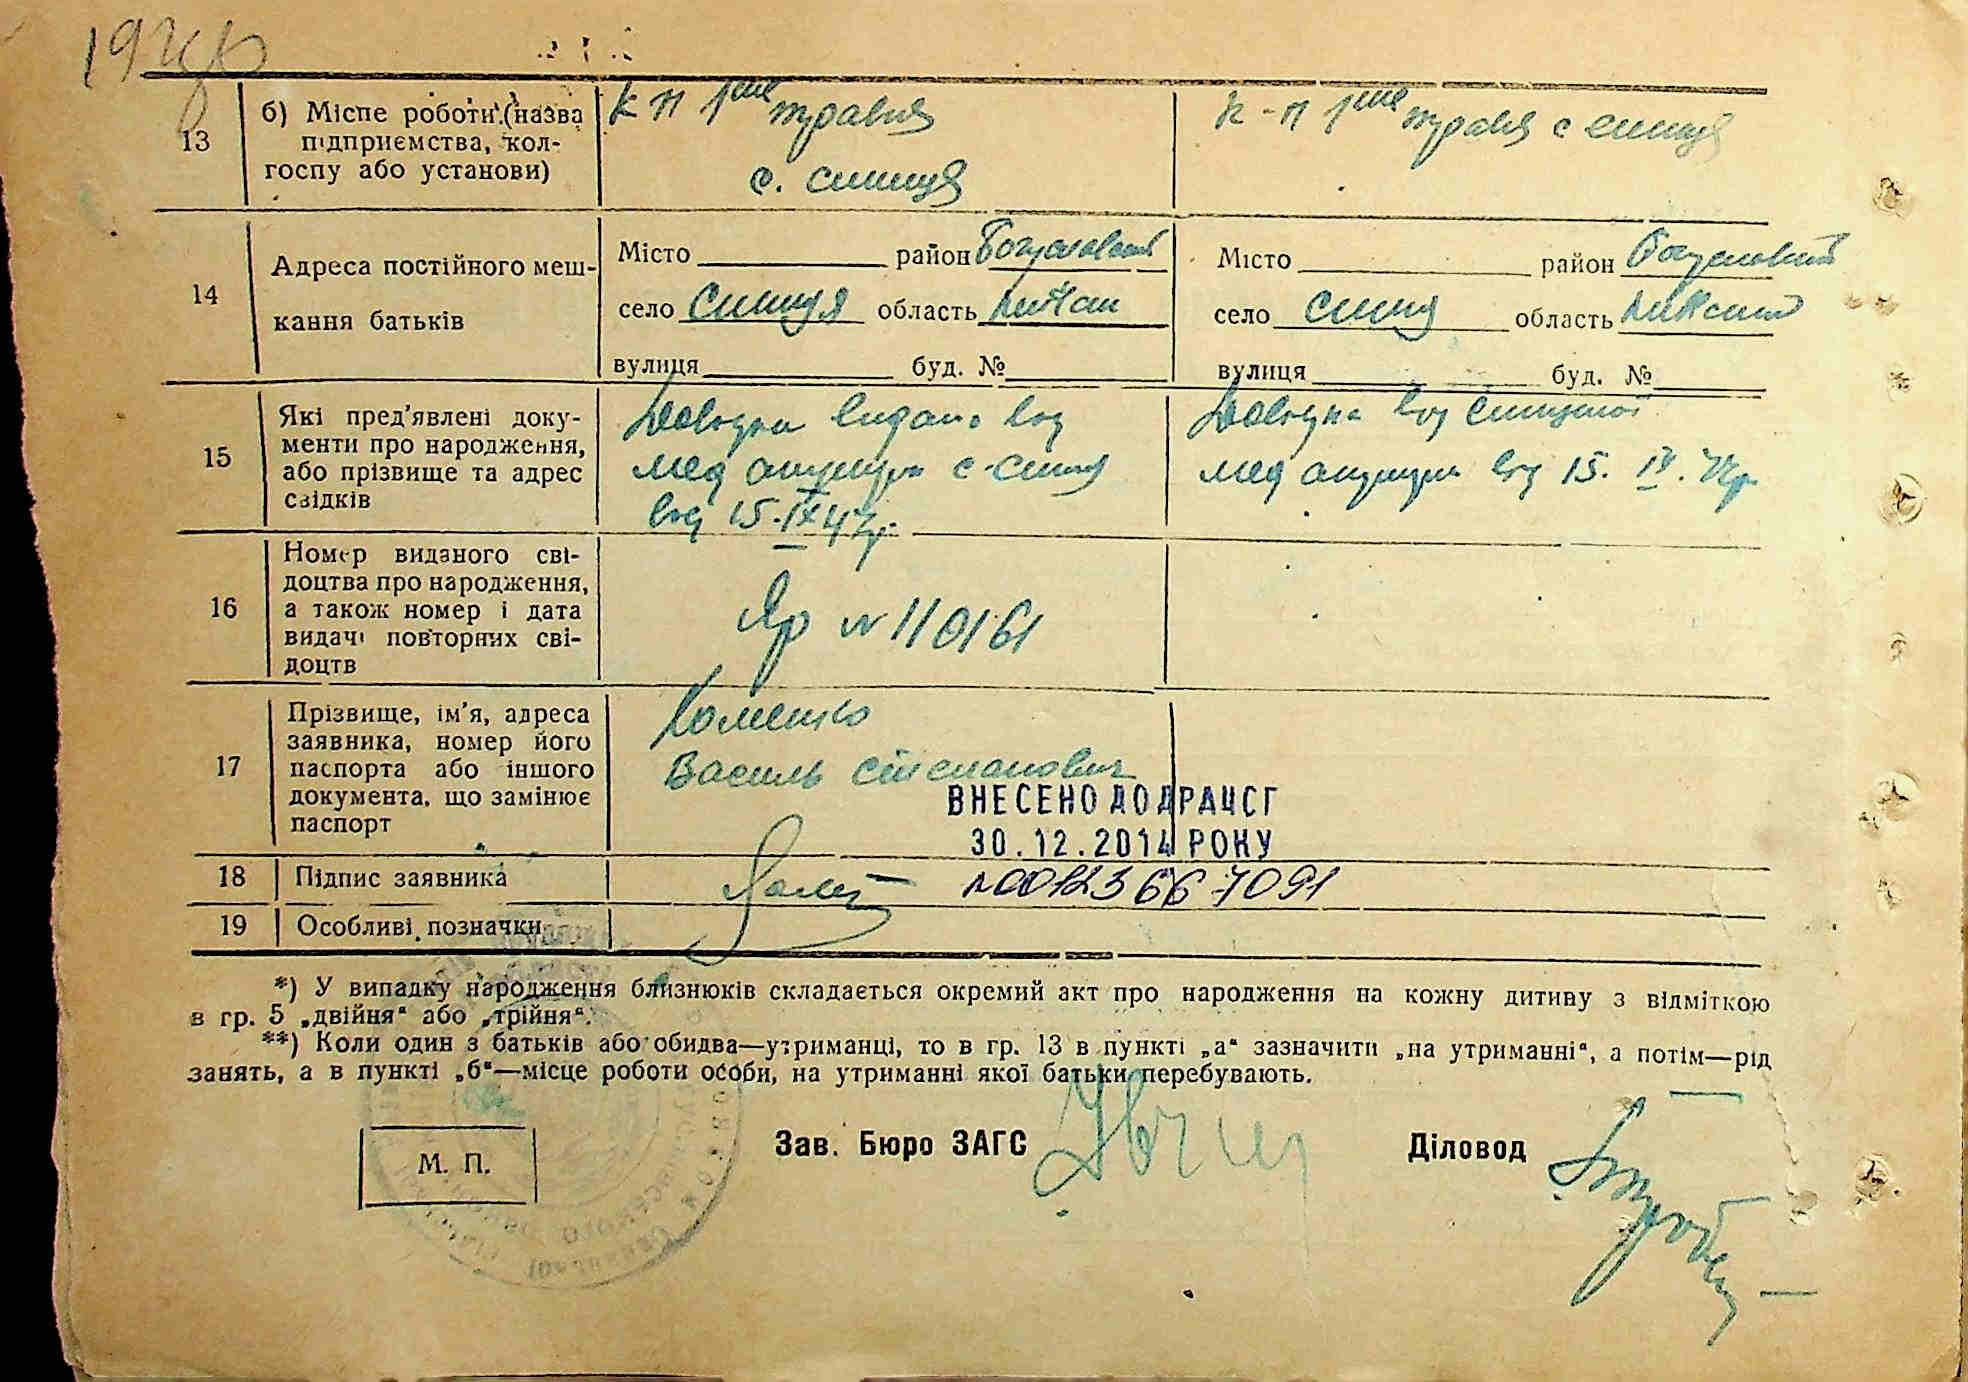 13
б) Місце роботи (назва
підприємства, кол-
госпу або установи)
к п 1ше травня
с. синиця
к-п 1ше травня с синиця
14
Адреса постійного меш-
кання батьків
Місто район Богуславский
село Синиця область
вулиця буд. №
Місто район Богуславский
село синиця область
вулиця буд. №
15
Які пред'явлені доку-
менти про народження,
або прізвище та адрес
свідків
Довідка видана від
мед с-синиця
від 15.IX 47р.
Довідка від
мед від 15. IX. 47р
16
Номер виданого сві-
доцтва про народження,
а також номер і дата
видачі повторних сві-
доцтв
Яр № 110161
17
Прізвище, ім'я, адреса
заявника, номер його
паспорта або іншого
документа, що замінює
паспорт
Хоменко
Василь Степанович
ВНЕСЕНО ДО ДРАЦСГ
30.12.2014 РОКУ
18
Підпис заявника
00123667091
19
Особливі позначки
*) У випадку народження близнюків складається окремий акт про народження на кожну дитину з відміткою
в гр. 5 „двійня“ або „трійня“.
**) Коли один з батьків або обидва—утриманці, то в гр. 13 в пункті „а“ зазначити „на утриманні“, а потім—рід
занять, а в пункті „б“—місце роботи особи, на утриманні якої батьки перебувають.
М. П.
Зав. Бюро ЗАГС
Діловод